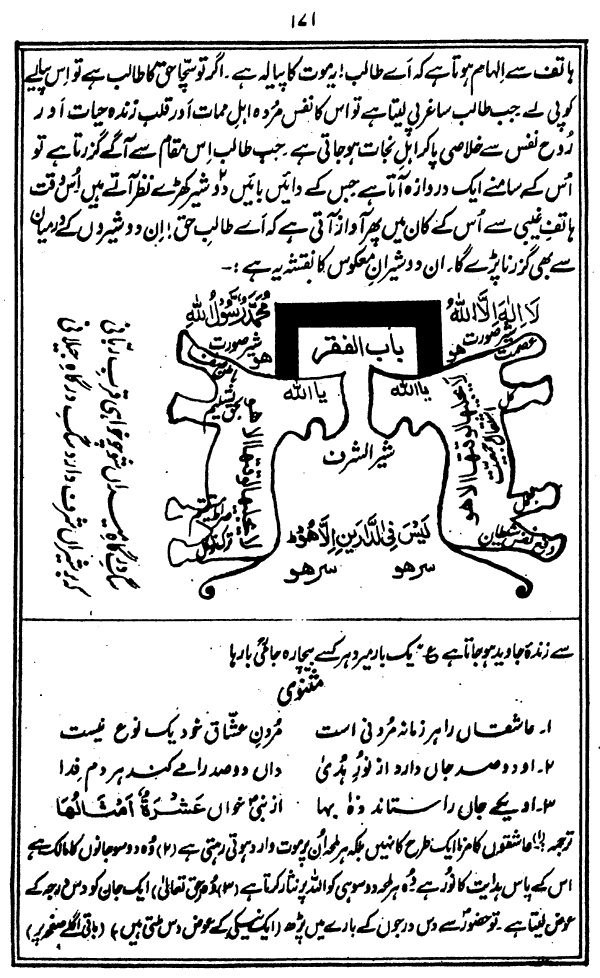 ۱۷۱
ہاتف سے الہام ہوتا ہے کہ اَے طالب! یہ موت کا پیالہ ہے۔ اگر تو سچا حق کا طالب ہے تو اِس پیالے
کو پی لے جب طالب ساغر پی لیتا ہے تو اس کا نفس مُردہ اہلِ ممات اَور قلب زندہ حیات اَور
رُوح نفس سے خلاصی پا کر اہلِ نجات ہو جاتی ہے۔ جب طالب اِس مقام سے آگے گزرتا ہے تو
اُس کے سامنے ایک دروازہ آتا ہے جس کے دائیں بائیں دو شیر کھڑے نظر آتے ہیں اُس وقت
ہاتفِ غیبی سے اُس کے کان میں پھر آواز آتی ہے کہ اَے طالبِ حق! اِن دو شیروں کے درمیان
سے بھی گزرنا پڑے گا۔ ان دو شیرانِ معکوس کا نقشہ یہ ہے :۔
لَا اِلٰہَ اِلَّا اللہُ
مُحَمَّدٌ رَّسُوْلُ اللہِ
شیر صورت
عصمت
ھو
باب الفقر
شیر صورت
ھو
یا اللہ
یا اللہ
لا یجلیھا لوقتھا الا ھو
جمعیت
لا یجلیھا لوقتھا الا ھو
شیر الشرف
لَیْسَ فِی الدَّارَیْنِ اِلَّا ھُوْ
سرھو
سرھو
ترک توکل
سگِ درگاہِ میراں شو چو خواہی قربِ ربّانی
کہ بر شیراں شرف دارد سگِ درگاہِ جیلانی
سے زندہ جاوید ہو جاتا ہے ع یک بار میرد ہر کسے بیچارہ جامیؔ بارہا
مثنوی
۱۔ عاشقاں را ہر زمانہ مُردنی است مُردنِ عشّاق خود یک نوع نیست
۲۔ او دو صد جاں دارد از نُورِ ہُدیٰ داں دو صد را مے کند ہر دم فِدا
۳۔ او یکے جاں را ستاند دہ بہا از نبیؐ خواں عَشْرَۃٌ اَمْثَالُھَا
ترجمہ (۱) عاشقوں کا مرنا ایک طرح کا نہیں بلکہ ہر لمحہ اُن پر موت وارد ہوتی رہتی ہے (۲) وُہ دو سو جانوں کا مالک ہے
اس کے پاس ہدایت کا نُور ہے وُہ ہر لمحہ دو سو ہی کو اللہ پر نثار کرتا ہے (۳) وُہ (حق تعالیٰ) ایک جان کو دس درجہ کے
عوض لیتا ہے۔ تو حضورؐ سے دس درجوں کے بارے میں پڑھ (ایک نیکی کے عوض دس ملتی ہیں) (باقی اگلے صفحہ پر)